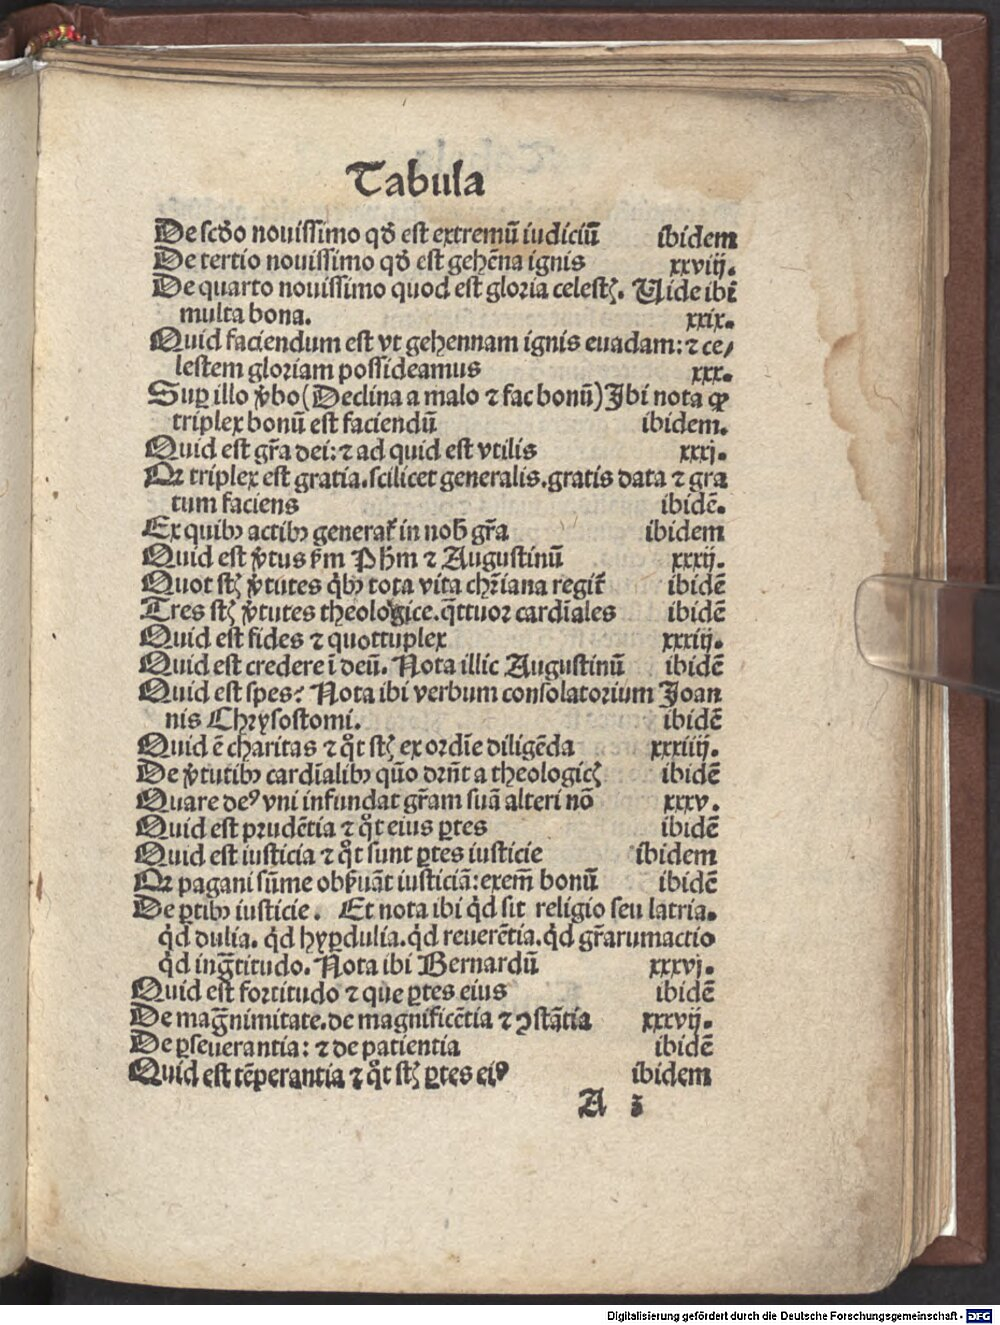 Tabula
De scďo nouissimo qď est extremū iudiciū ibidem
De tertio nouissimo qď est gehēna ignis xxviij.
De quarto nouissimo quod est gloria celestꝭ. Uide ibi
multa bona. xxix.
Quid faciendum est vt gehennam ignis euadam: ⁊ ce/
lestem gloriam possideamus xxx.
Suꝑ illo ꝟbo (Declina a malo ⁊ fac bonū) Ibi nota ꝙ
triplex bonū est faciendū ibidem.
Quid est gr̄a dei: ⁊ ad quid est vtilis xxxj.
Qꝛ triplex est gratia. scilicet generalis. gratis data ⁊ gra
tum faciens ibidē.
Ex quibꝰ actibꝰ generat᷑ in nob̄ gr̄a ibidem
Quid est ꝟtus ẜm Ph̄m ⁊ Augustinū xxxij.
Quot st̄ ꝟtutes qͥbꝰ tota vita chr̄iana regit᷑ ibidē
Tres st̄ ꝟtutes theologice. qͣttuor cardīales ibidē
Quid est fides ⁊ quottuplex xxxiij.
Quid est credere ī deū. Nota illic Augustinū ibidē
Quid est spes: Nota ibi verbum consolatorium Joan
nis Chrysostomi. ibidē
Quid ē charitas ⁊ qͦt st̄ ex ordīe diligēda xxxiiij.
De ꝟtutibꝰ cardīalibꝰ quō drn̄t a theologicꝭ ibidē
Quare deꝰ vni infundat gr̄am suā alteri nō xxxv.
Quid est prudētia ⁊ qͦt eius ꝑtes ibidē
Quid est iusticia ⁊ qͦt sunt ꝑtes iusticie ibidem
Qꝛ pagani sūme obẜuāt iusticiā: exem̄ bonū ibidē
De ꝑtibꝰ iusticie. Et nota ibi qͥd sit religio seu latria.
qͥd dulia. qͥd hyꝑdulia. qͥd reuerētia. qͥd gr̄arumactio
qͥd ingͣtitudo. Nota ibi Bernardū xxxvj.
Quid est fortitudo ⁊ que ꝑtes eius ibidē
De magͣnimitate. de magnificētia ⁊ ꝯstātia xxxvij.
De ꝑseuerantia: ⁊ de patientia ibidē
Quid est tēperantia ⁊ qͦt st̄ ꝑtes eiꝰ ibidem
A 3
Digitalisierung gefördert durch die Deutsche Forschungsgemeinschaft - DFG